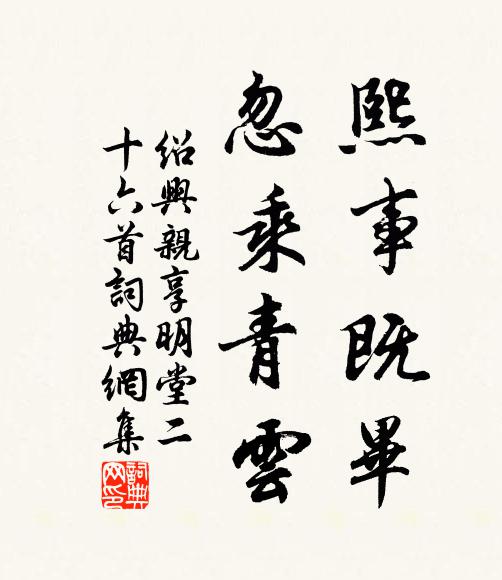 熙事既畢
忽乘青雲
紹興親享明堂二
十六首詞典網集
詞典網印